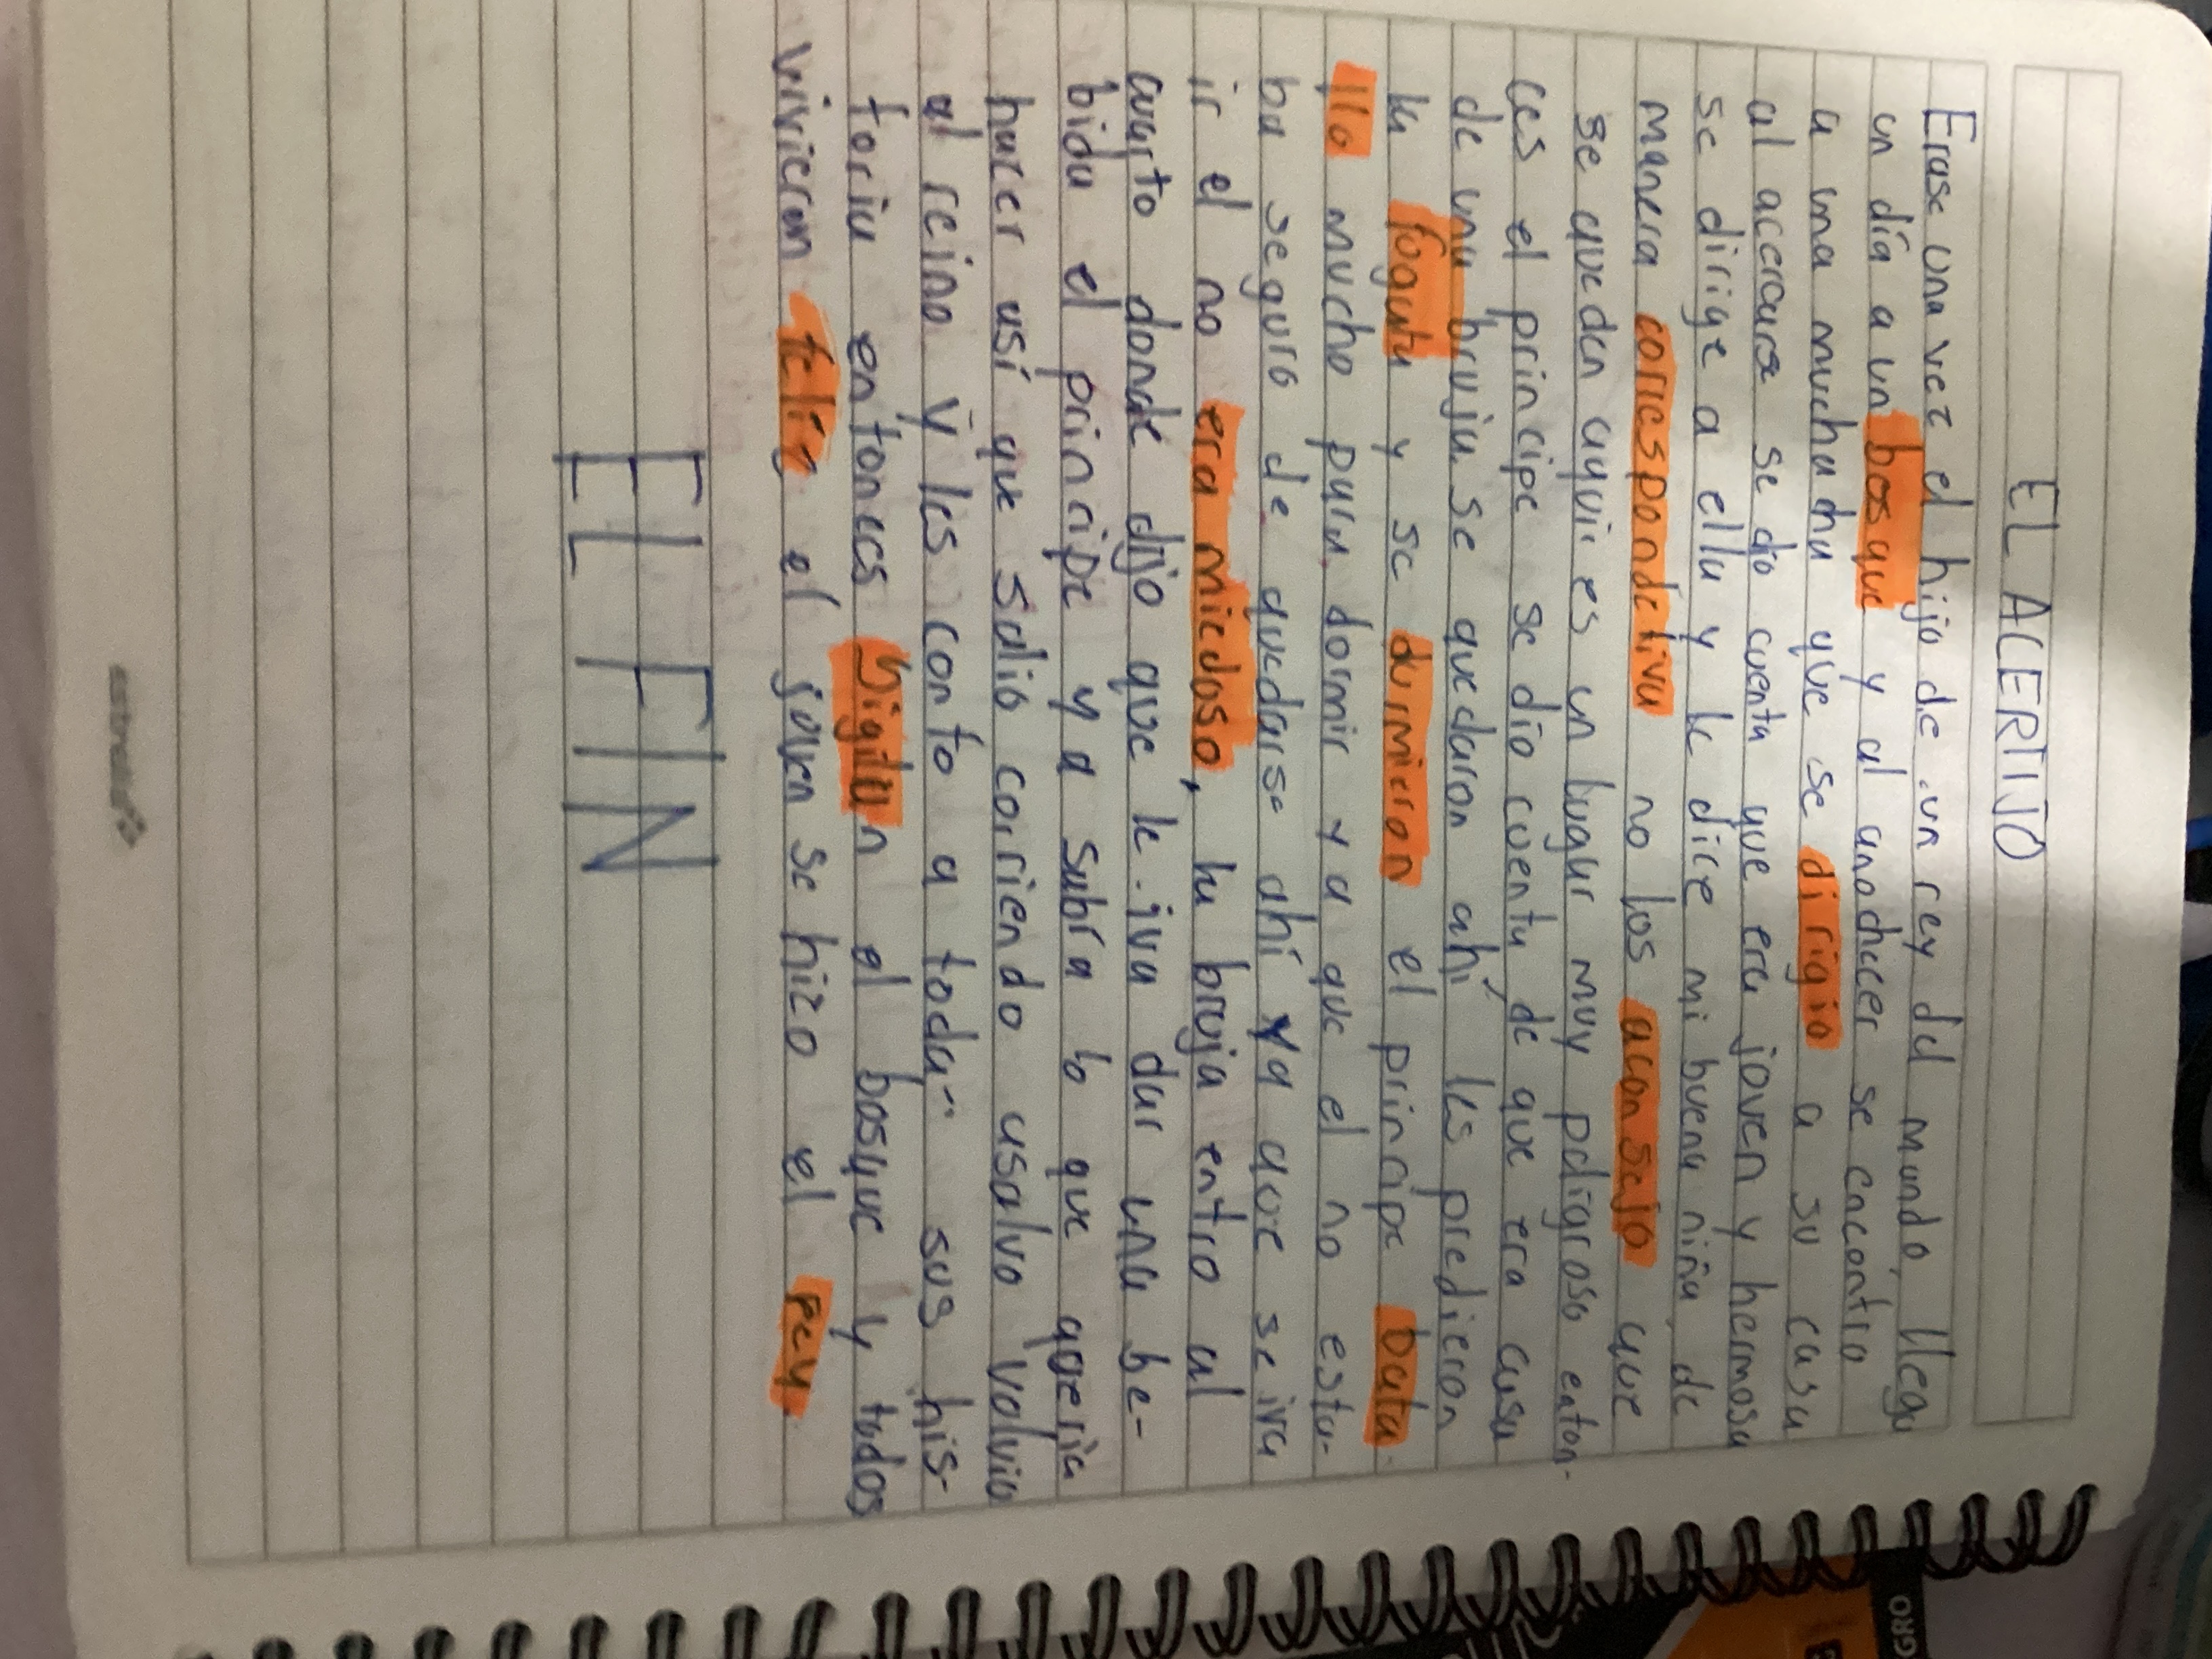 EL ACERTIJO
Erase una vez el hijo de un rey del mundo, llega
un día a un bosque y al anochecer se encontro
a una muchacha que se dirigio a su casa
al acercarse se dio cuenta que era joven y hermosa
se dirige a ella y le dice mi buena niña, de
manera correspondetiva no los aconsejo que
se queden aqui es un lugar muy peligroso enton-
ces el principe se dio cuenta de que era casa
de una bruja se quedaron ahí, les predieron
la fogata y se durmieron el principe bata-
llo mucho para dormir ya que el no esta-
ba seguro de quedarse ahí ya que se iva
ir el no era miedoso, la bruja entro al
cuarto donde dijo que le iva dar una be-
bida el principe ya sabía lo que quería
hacer así que salio corriendo asalvo volvio
al reino y les conto a toda sus his-
toria entonces al bosque y todos
vivieron el joven se hizo el rey.
EL FIN
estrella
ORGRO